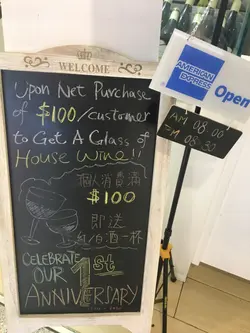 WELCOME
Upon Net Purchase
of $100/customer
to Get A Glass of
House Wine!!
個人消費滿
$100
即送
紅/白酒一杯
CELEBRATE
OUR 1st
ANNIVERSARY
AMERICAN
EXPRESS
Open
AM 08:00
PM 08:30